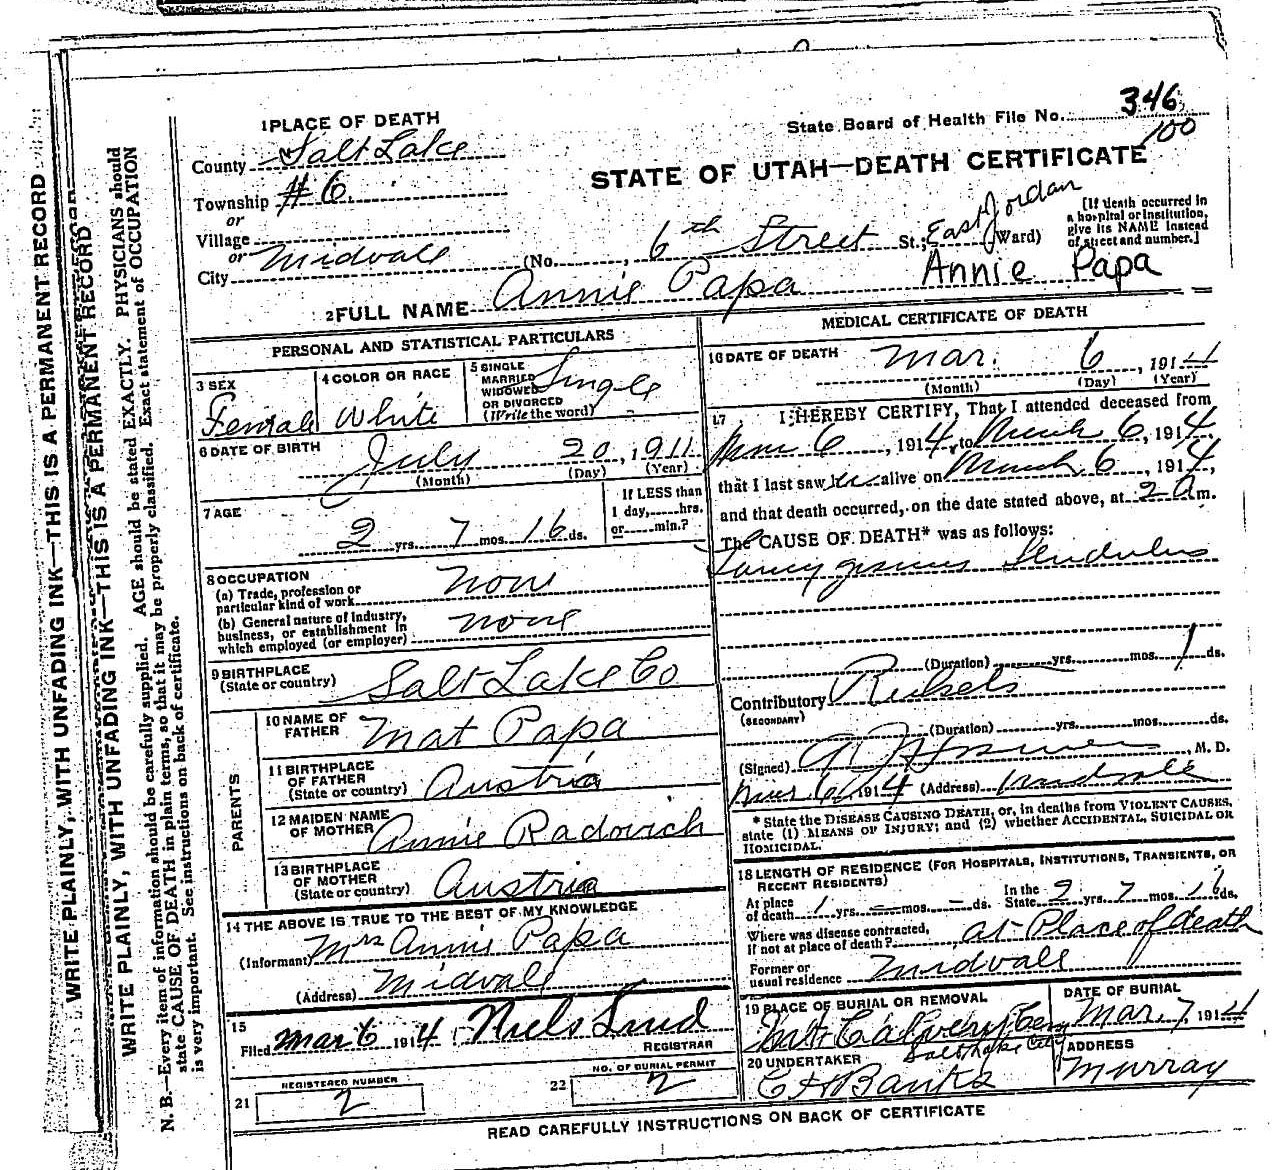 WRITE PLAINLY, WITH UNFADING INK—THIS IS A PERMANENT RECORD
WRITE PLAINLY, WITH UNFADING INK—THIS IS A PERMANENT RECORD
N. B.—Every item of information should be carefully supplied. AGE should be stated EXACTLY. PHYSICIANS should
state CAUSE OF DEATH in plain terms, so that it may be properly classified. Exact statement of OCCUPATION
is very important. See instructions on back of certificate.
State Board of Health File No. 346
100
STATE OF UTAH—DEATH CERTIFICATE
1 PLACE OF DEATH
County Salt Lake
Township # 6
or
Village
or
City Midvale (No. , 6th Street St.; East Jordan Ward)
[If death occurred in
a hospital or institution,
give its NAME instead
of street and number.]
Annie Papa
2 FULL NAME Annie Papa
PERSONAL AND STATISTICAL PARTICULARS
3 SEX
Female
4 COLOR OR RACE
White
5 SINGLE
MARRIED
WIDOWED
OR DIVORCED
(Write the word)
Single
6 DATE OF BIRTH
July 20, 1911
(Month) (Day) (Year)
7 AGE
2 yrs. 7 mos. 16 ds.
If LESS than
1 day, hrs.
or min.?
8 OCCUPATION
(a) Trade, profession or
particular kind of work none
(b) General nature of industry,
business, or establishment in
which employed (or employer) none
9 BIRTHPLACE
(State or country) Salt Lake Co
PARENTS
10 NAME OF
FATHER Mat Papa
11 BIRTHPLACE
OF FATHER
(State or country) Austria
12 MAIDEN NAME
OF MOTHER Annie Radovich
13 BIRTHPLACE
OF MOTHER
(State or country) Austria
14 THE ABOVE IS TRUE TO THE BEST OF MY KNOWLEDGE
(Informant) Mrs Annie Papa
(Address) Midvale
15
Filed Mar 6 1914 Niels Lind
REGISTRAR
REGISTERED NUMBER
21 2
NO. OF BURIAL PERMIT
22 2
MEDICAL CERTIFICATE OF DEATH
16 DATE OF DEATH Mar. 6, 1914
(Month) (Day) (Year)
17 I HEREBY CERTIFY, That I attended deceased from
6, 1914, to March 6, 1914,
that I last saw alive on March 6, 1914,
and that death occurred, on the date stated above, at 2 a m.
The CAUSE OF DEATH* was as follows:
(Duration) yrs. mos. 1 ds.
Contributory
(SECONDARY)
(Duration) yrs. mos. ds.
(Signed) , M. D.
6, 1914 (Address) Midvale
* State the DISEASE CAUSING DEATH, or, in deaths from VIOLENT CAUSES,
state (1) MEANS OF INJURY; and (2) whether ACCIDENTAL, SUICIDAL OR
HOMICIDAL.
18 LENGTH OF RESIDENCE (FOR HOSPITALS, INSTITUTIONS, TRANSIENTS, OR
RECENT RESIDENTS)
At place
of death 1 yrs. – mos. – ds. In the
State 2 yrs. 7 mos. 16 ds.
Where was disease contracted,
if not at place of death? at Place of death
Former or
usual residence Midvale
19 PLACE OF BURIAL OR REMOVAL
Mt Calvery Cem
Salt Lake City
DATE OF BURIAL
Mar. 7 1914
20 UNDERTAKER
Banks
ADDRESS
Murray
READ CAREFULLY INSTRUCTIONS ON BACK OF CERTIFICATE